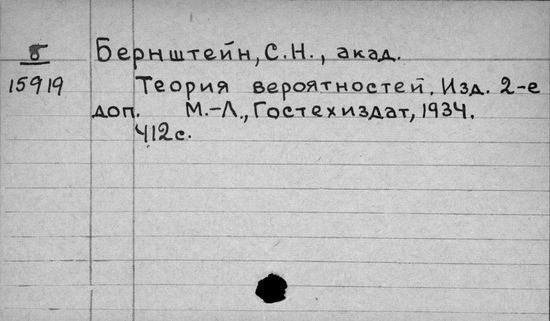 Б
15919
Бернштейн, С.Н., акад.
Теория вероятностей. Изд. 2-е
доп. М.-Л., Гостехиздат, 1934.
412 с.